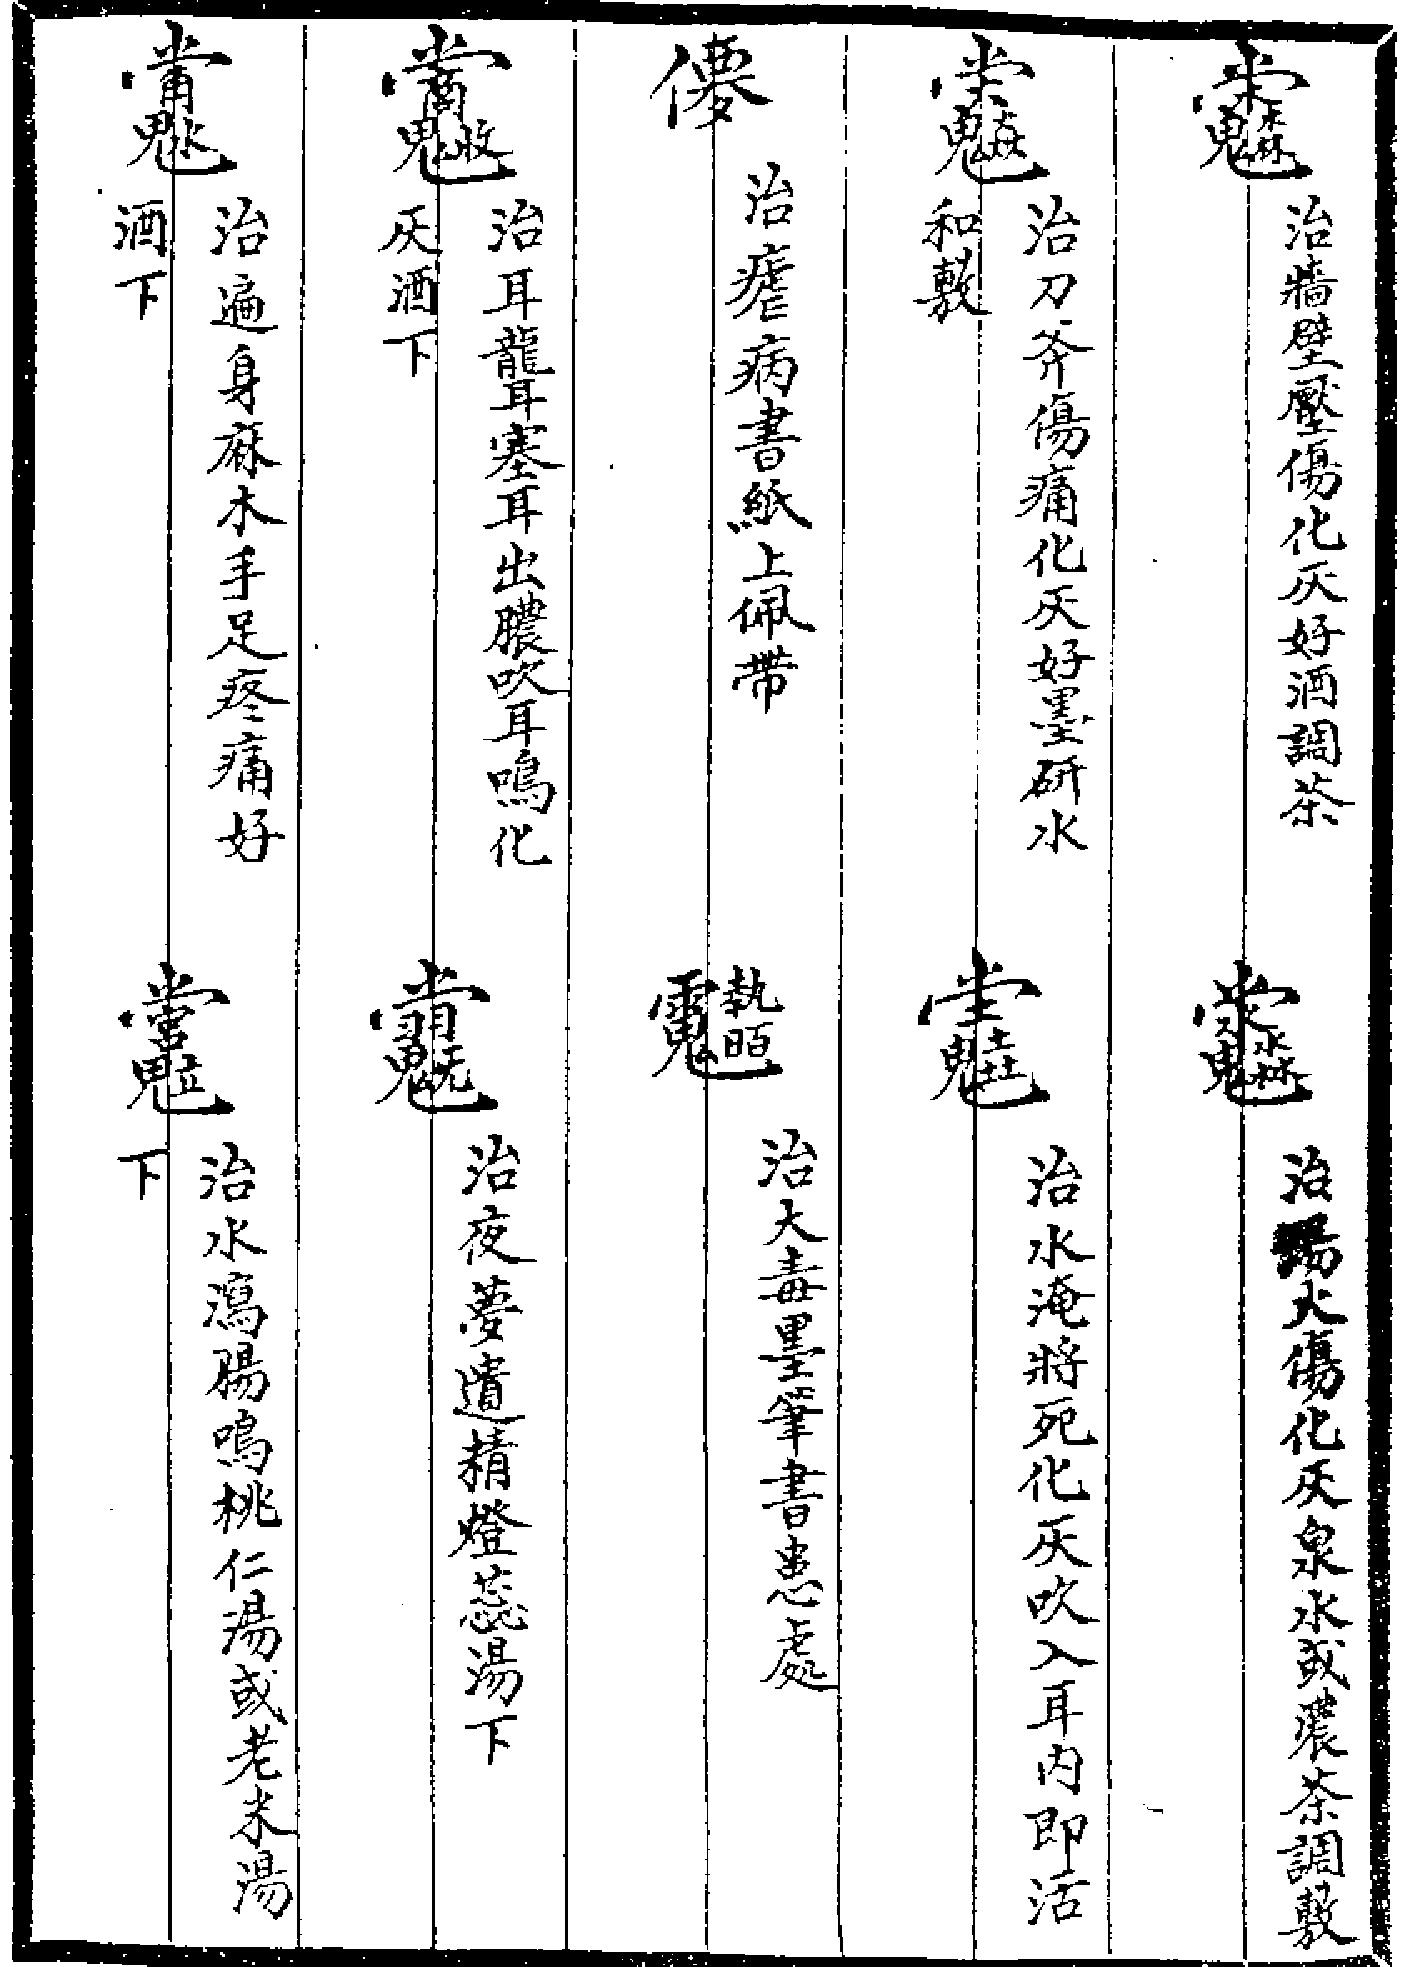 治牆壁壓傷化灰好酒調茶
治湯火傷化灰泉水或濃茶調敷
治刀斧傷痛化灰好墨研水
和敷
治水淹將死化灰吹入耳內即活
治瘧病書紙上佩帶
治大毒墨筆書患處
治耳聾耳塞耳出膿吹耳鳴化
灰酒下
治夜夢遺精燈蕊湯下
治遍身麻木手足疼痛好
酒下
治水瀉腸鳴桃仁湯或老米湯
下